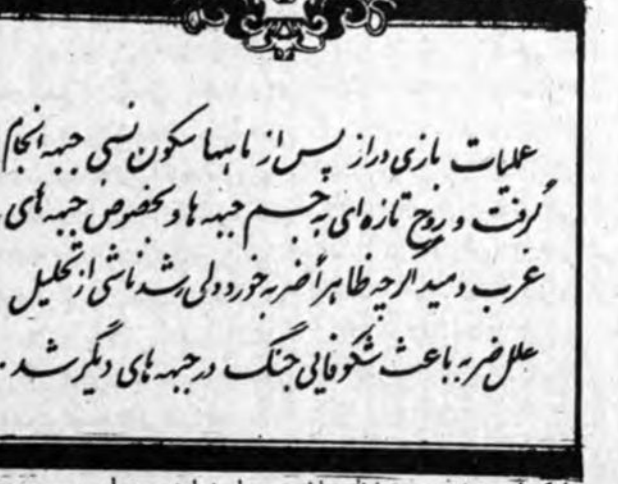 عملیات بازی دراز پس از ماهها سکون نسبی جبهه انجام
گرفت و روح تازه‌ای به جسم جبهه ها و بخصوص جبهه های
غرب دمید اگرچه ظاهراً ضربه خورد ولی رشد ناشی از تحلیل
علل ضربه باعث شکوفائی جنگ در جبهه های دیگر شد.